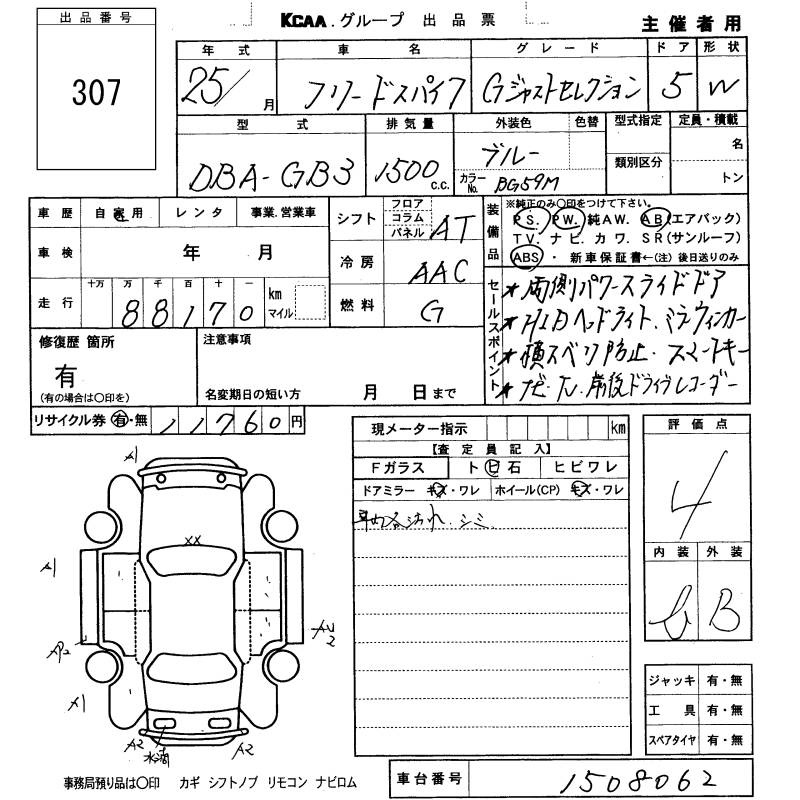 出品番号
307
KCAA.グループ 出品票
主催者用
年式 車名 グレード ドア 形状
25/ 月 フリードスパイク Gジャストセレクション 5 W
型式 排気量 外装色 色替 型式指定 定員・積載
DBA-GB3 1500 c.c. ブルー 名
カラーNo. BG59M 類別区分 トン
車歴 自家用 レンタ 事業.営業車
車検 年 月
走行 十万 万 千 百 十 一 km マイル
88170
シフト フロア コラム パネル AT
冷房 AAC
燃料 G
装備品 ※純正のみ○印をつけて下さい。
P S. P W. 純A W. A B (エアバック)
T V. ナ ビ. カ ワ. S R (サンルーフ)
ABS ・ 新車保証書←(注) 後日送りのみ
セールスポイント
★両側パワースライドドア
★HIDヘッドライト.ミラーウィンカー
★横スベリ防止.スマートキー
★ナビ.TV.前後ドライブレコーダー
修復歴 箇所
有
(有の場合は○印を)
注意事項
名変期日の短い方 月 日まで
リサイクル券 有・無 11760円
現メーター指示 km
【査定員記入】
Fガラス ト ビ 石 ヒビワレ
ドアミラー キズ・ワレ ホイール(CP) キズ・ワレ
汚れ.シミ
評価点
4
内装 外装
B
A1
XX
A1
A2
A2
A1
A2
A2
ジャッキ 有・無
工具 有・無
スペアタイヤ 有・無
事務局預り品は○印 カギ シフトノブ リモコン ナビロム
車台番号 1508062